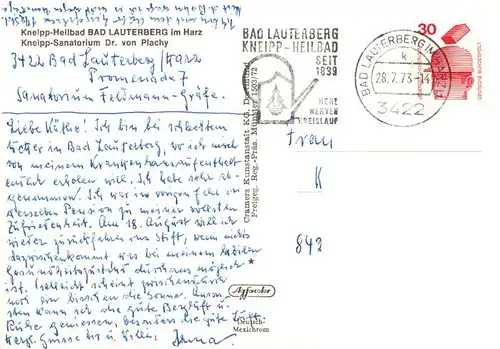 Kneipp-Heilbad BAD LAUTERBERG im Harz
Kneipp-Sanatorium Dr. von Plachy
3422 Bad Lauterberg/Harz
Promenade 7
Sanatorium Feldmann-Gräfe.
Liebe Käthe! Ich bin bei schlechtem
Wetter in Bad Lauterberg, wo ich mich
von meinem Krankenhausaufenthalt
endlich erholen will. Ich habe sehr ab-
genommen. Ich war im vorigen Jahr in
derselben Pension zu meiner vollsten
Zufriedenheit. Am 18. August will ich
wieder zurückfahren ins Stift, wenn nichts
dazwischenkommt, was bei meinem labilen
Gesundheitszustand durchaus möglich
ist. Vielleicht scheint zwischendurch
noch ein bisschen die Sonne. Anson-
sten kann ich die gute Bergluft u.
Ruhe geniessen, besonders die gute Luft.
Herzl. Grüsse
Cramers Kunstanstalt KG, Dortmund
Freigeg. Reg.-Präs. Münster 1503/72
Agfacolor
Deutsch-
Mexichrom
BAD LAUTERBERG
KNEIPP-HEILBAD
SEIT
1839
HERZ
NERVEN
KREISLAUF
BAD LAUTERBERG IM HARZ 1
k
28.7.73-14
3422
30
Frau
K
842